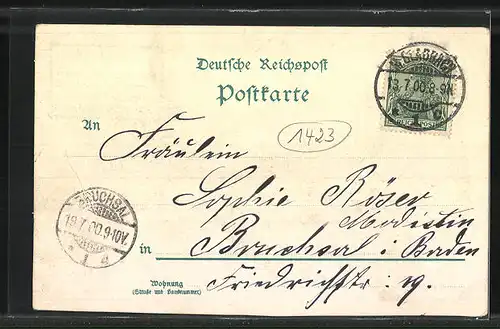 Deutsche Reichspost
Postkarte
M. GLADBACH
13.7.00.8-9N.
1 c
1423
An
Fräulein
Sophie Röser
Modistin
in Bruchsal i/Baden
Friedrichstr: 19.
BRUCHSAL
19.7.00.9-10V.
Wohnung
(Straße und Hausnummer)